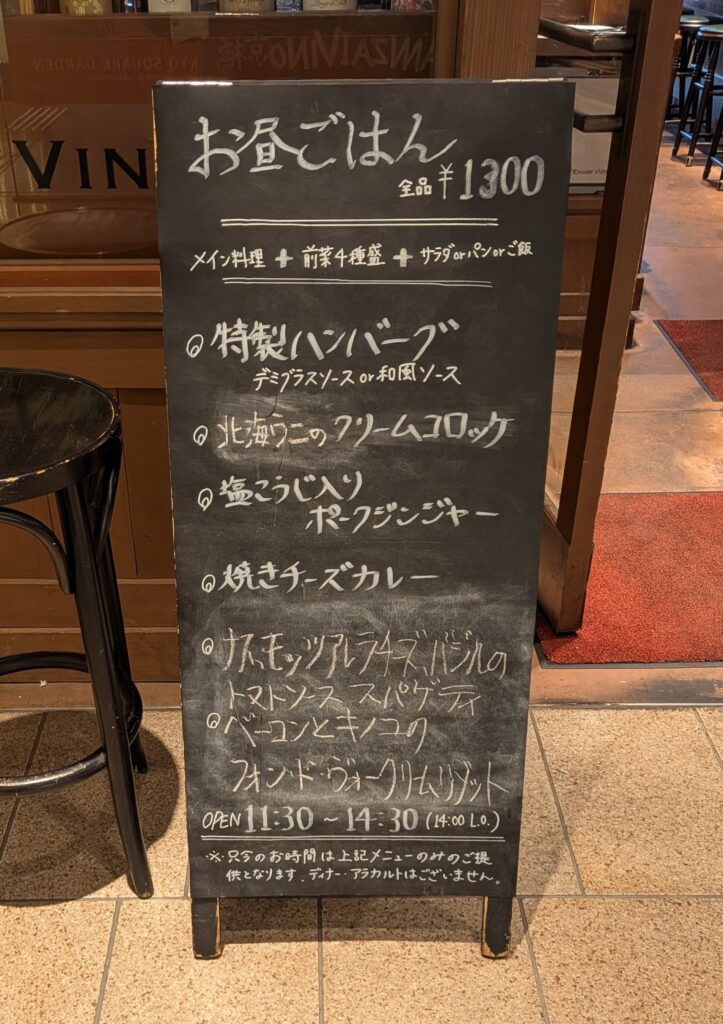 TOKYO SQUARE GARDEN
VIN
お昼ごはん
全品 ¥1300
メイン料理 + 前菜4種盛 + サラダorパンorご飯
◎特製ハンバーグ
デミグラスソース or 和風ソース
◎北海ウニのクリームコロッケ
◎塩こうじ入り
ポークジンジャー
◎焼きチーズカレー
◎ナス、モッツアレラチーズ、バジルの
トマトソース、スパゲティ
◎ベーコンとキノコの
フォン・ド・ヴォークリームリゾット
OPEN 11:30 ～ 14:30 (14:00 L.O.)
※只今のお時間は上記メニューのみのご提
供となります、ディナー・アラカルトはございません。